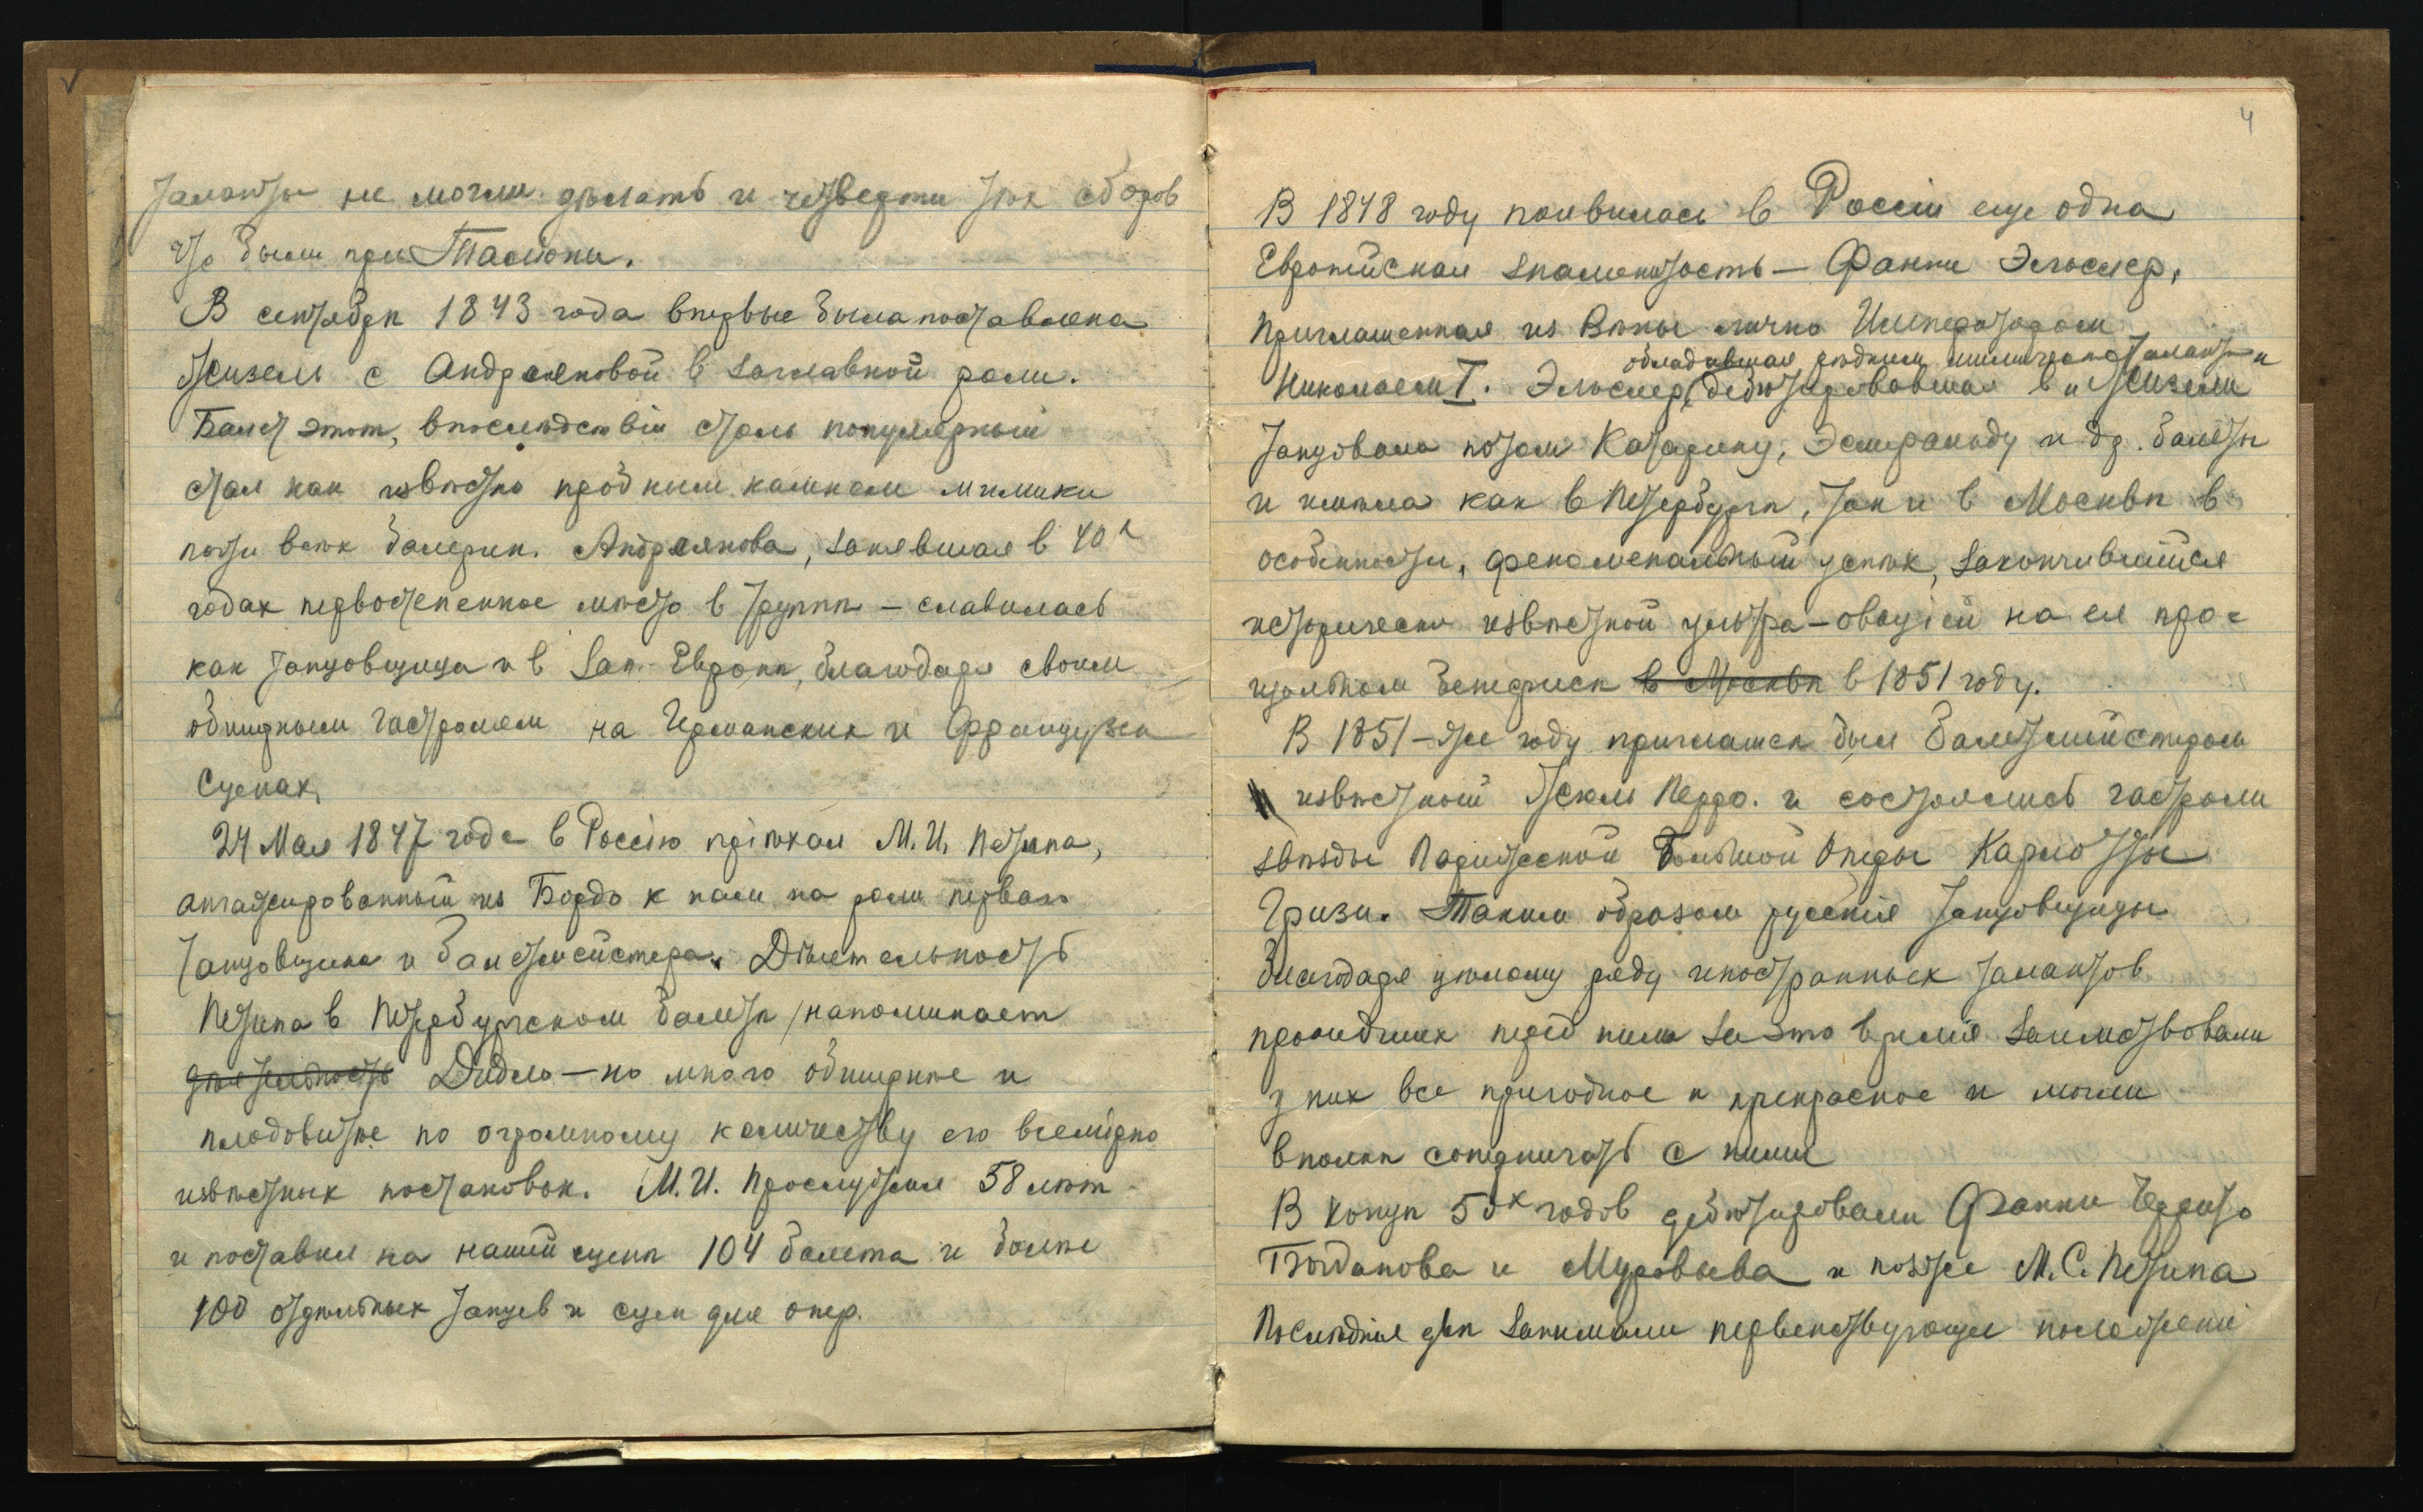 таланты не могли дѣлать и четверти тѣх сборов
что были при Тальони.
В сентябрѣ 1843 года впервые была поставлена
Жизель с Андреяновой в заглавной роли.
Балет этот, впослѣдствіи столь популярный
стал как извѣстно пробным камнем мимики
почти всѣх балерин. Андреянова, занявшая в 40х
годах первостепенное мѣсто в труппѣ – славилась
как танцовщица и в Зап. Европѣ, благодаря своим
обширным гастролям на Германских и Французск
сценах.
24 Мая 1847 года в Россію пріѣхал М. И. Петипа,
ангажированный из Бордо к нам на роли перваго
танцовщика и балетмейстера. Дѣятельность
Петипа в Петербургском балетѣ напоминает
дѣятельность Дидло – но много обширнѣе и
плодовитѣе по огромному количеству его всемірно
извѣстных постановок. М. И. прослужил 58 лѣт
и поставил на нашей сценѣ 104 балета и болѣе
100 отдѣльных танцев и сцен для опер.
4
В 1848 году появилась в Россіи еще одна
Европейская знаменитость – Фанни Эльслер,
приглашенная из Вѣны лично Императором
обладавшая рѣдким мимическ. талантом
Николаем I. Эльслер, дебютировавшая в „Жизели“
танцовала потом Катарину, Эсмеральду и др. балеты
и имѣла как в Петербургѣ, так и в Москвѣ в
особенности, феноменальный успѣх, закончившійся
исторически извѣстной ультра-оваціей на ея про=
щальном бенефисѣ в Москвѣ в 1851 году.
В 1851-же году приглашен был балетмейстером
извѣстный Жюль Перро. и состоялись гастроли
звѣзды Парижской Большой Оперы Карлотты
Гризи. Таким образом русскія танцовщицы
благодаря цѣлому ряду иностранных талантов
прошедших перед ними за это время заимствовали
у них все пригодное и прекрасное и могли
вполнѣ соперничать с ними
В концѣ 50х годов дебютировали Фанни Черрито
Богданова и Муравьева и позже М. С. Петипа
Послѣднія двѣ занимали первенствующее положеніе